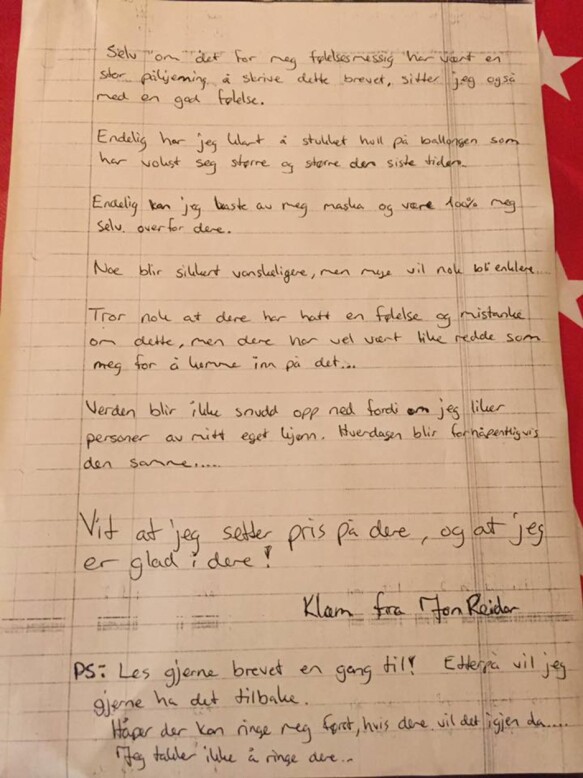 Selv om det for meg følelsesmessig har vært en
stor påkjenning å skrive dette brevet, sitter jeg også
med en god følelse.
Endelig har jeg klart å stukket hull på ballongen som
har vokst seg større og større den siste tiden.
Endelig kan jeg kaste av meg maska og være 100% meg
selv overfor dere.
Noe blir sikkert vanskeligere, men mye vil nok bli enklere....
Tror nok at dere har hatt en følelse og mistanke
om dette, men dere har vel vært like redde som
meg for å komme inn på det...
Verden blir ikke snudd opp ned fordi om jeg liker
personer av mitt eget kjønn. Hverdagen blir forhåpentligvis
den samme.....
Vit at jeg setter pris på dere, og at jeg
er glad i dere!
Klem fra Jon Reidar
PS: Les gjerne brevet en gang til! Etterpå vil jeg
gjerne ha det tilbake.
Håper der kan ringe meg først, hvis dere vil det igjen da....
Jeg takler ikke å ringe dere...